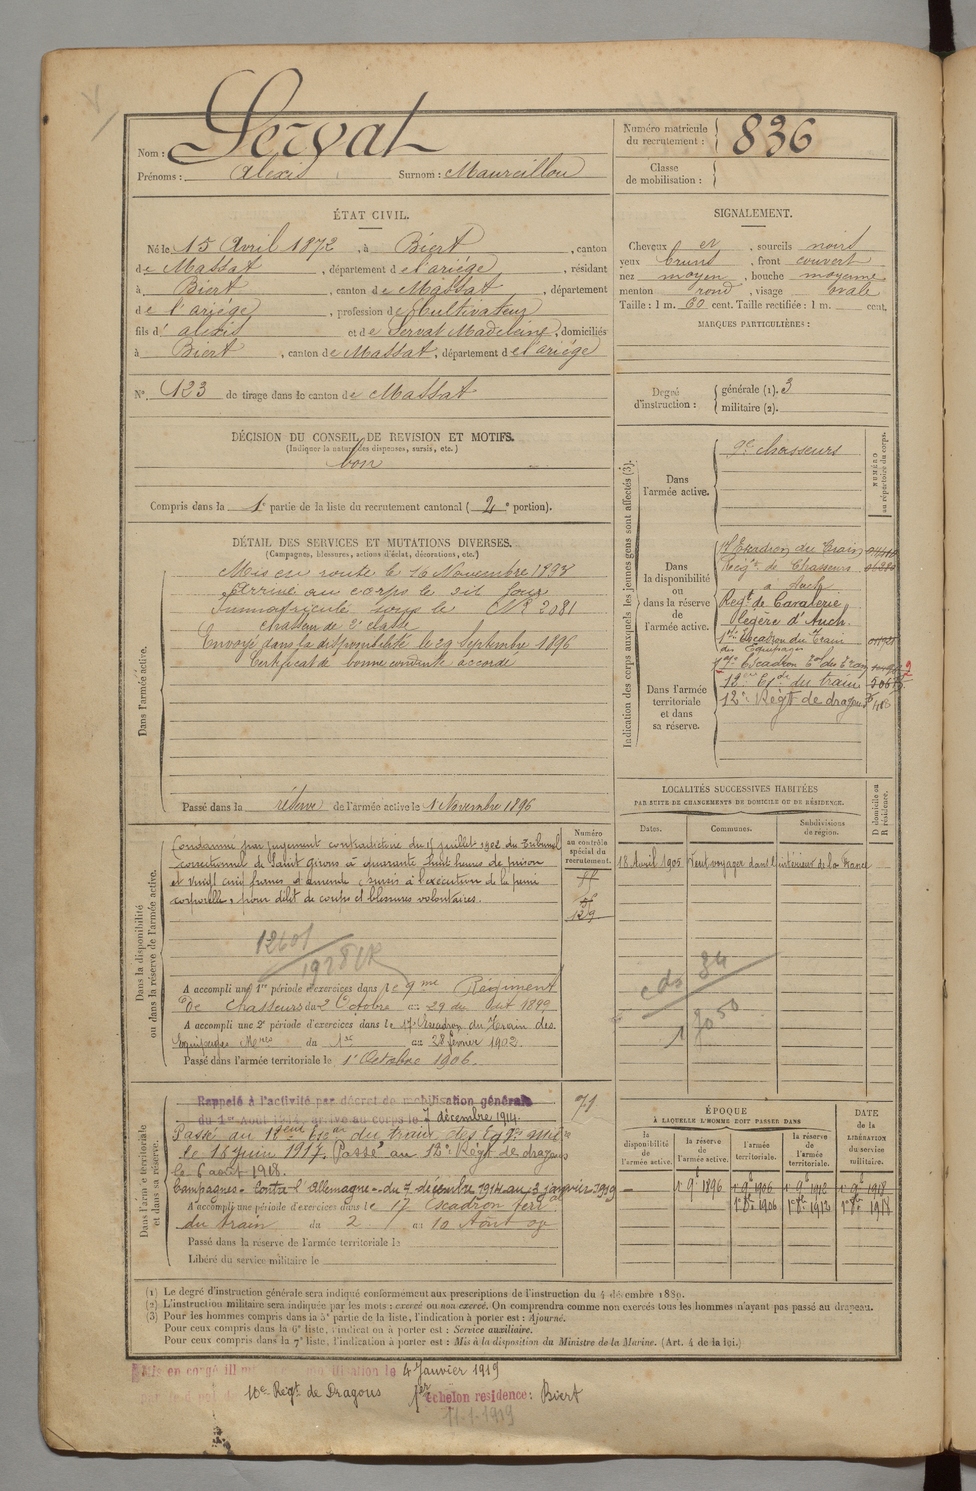 Nom : Servat
Prénoms : Alexis Surnom : Maureillou
Numéro matricule du recrutement : 836
Classe de mobilisation :
ÉTAT CIVIL.
Né le 15 Avril 1872, à Biert, canton
de Massat, département de l'ariége, résidant
à Biert, canton de Massat, département
de l'ariége, profession de Cultivateur
fils d' alexis et de Servat Madeleine, domiciliés
à Biert, canton de Massat, département de l'ariége
No. 123 de tirage dans le canton de Massat
SIGNALEMENT.
Cheveux et, sourcils noirs
yeux bruns, front couvert
nez moyen, bouche moyenne
menton rond, visage ovale
Taille : 1 m. 60 cent. Taille rectifiée : 1 m. cent.
MARQUES PARTICULIÈRES :
Degré d'instruction : générale (1). 3
militaire (2).
DÉCISION DU CONSEIL DE REVISION ET MOTIFS.
(Indiquer la nature des dispenses, sursis, etc.)
bon
Compris dans la 1e partie de la liste du recrutement cantonal (2e portion).
DÉTAIL DES SERVICES ET MUTATIONS DIVERSES.
(Campagnes, blessures, actions d'éclat, décorations, etc.)
Dans l'armée active.
Mis en route le 16 Novembre 1893
Arrivé au corps le dit Jour
Immatriculé sous le No 2081
Chasseur de 2e classe
Envoyé dans la disponibilité le 29 Septembre 1896
Certificat de bonne conduite accordé
Passé dans la réserve de l'armée active le 1 Novembre 1896
Indication des corps auxquels les jeunes gens sont affectés (3).
NUMÉRO au répertoire du corps.
Dans l'armée active.
9e Chasseurs
Dans la disponibilité ou dans la réserve de l'armée active.
17 Escadron du Train
Régt de Chasseurs
à Auch
Regt de Cavalerie
légère d'Auch
17e Escadron du Train
des Equipages
Dans l'armée territoriale et dans sa réserve.
17e Escadron Eal du Train
12e Ed du train
12e Régt de dragons
LOCALITÉS SUCCESSIVES HABITÉES
PAR SUITE DE CHANGEMENTS DE DOMICILE OU DE RÉSIDENCE.
Dates. Communes. Subdivisions de région. D domicile ou R résidence.
18 Avril 1905 Peut voyager dans l'intérieur de la France
Dans la disponibilité ou dans la réserve de l'armée active.
Numéro au contrôle spécial du recrutement.
Condamné par jugement contradictoire du 15 juillet 1902 du Tribunal
correctionnel de Saint girons à quarante huit heures de prison
et vingt cinq francs d'amende, sursis à l'exécution de la peine
corporelle, pour délit de coups et blessures volontaires.
129
12601
A accompli une 1re période d'exercices dans le 9me Régiment
De Chasseurs du 2 Octobre au 29 du dit 1899
A accompli une 2e période d'exercices dans le 17e Escadron du Train des
Equipages Mres du 1er au 28 février 1902.
Passé dans l'armée territoriale le 1er Octobre 1906.
Dans l'armée territoriale et dans sa réserve.
71
Rappelé à l'activité par décret de mobilisation générale
du 1er Août 1914, arrivé au corps le 7 décembre 1914.
Passé au 12eme Escon du train des Eqges mil
le 15 Juin 1917. Passé au 12e Régt de dragons
le 6 août 1918.
Campagnes - Contre l'Allemagne - du 7 décembre 1914 au 3 janvier 1919
A accompli une période d'exercices dans le 17 Escadron Terr
du train du 2 au 10 Août 09
Passé dans la réserve de l'armée territoriale le
Libéré du service militaire le
ÉPOQUE
À LAQUELLE L'HOMME DOIT PASSER DANS
la disponibilité de l'armée active. la réserve de l'armée active. l'armée territoriale. la réserve de l'armée territoriale. DATE de la LIBÉRATION du service militaire.
— 1er 9e 1896 1er 9e 1906 1er 9e 1912 1er 9e 1918
1er 8e 1906 1er 8e 1912 1er 8e 1918
(1) Le degré d'instruction générale sera indiqué conformément aux prescriptions de l'instruction du 4 décembre 1889.
(2) L'instruction militaire sera indiquée par les mots : exercé ou non exercé. On comprendra comme non exercés tous les hommes n'ayant pas passé au drapeau.
(3) Pour les hommes compris dans la 3e partie de la liste, l'indication à porter est : Ajourné.
Pour ceux compris dans la 6e liste, l'indication à porter est : Service auxiliaire.
Pour ceux compris dans la 7e liste, l'indication à porter est : Mis à la disposition du Ministre de la Marine. (Art. 4 de la loi.)
Mis en congé le 4 Janvier 1919
10e Régt de Dragons 1er échelon résidence : Biert
11-1-1919